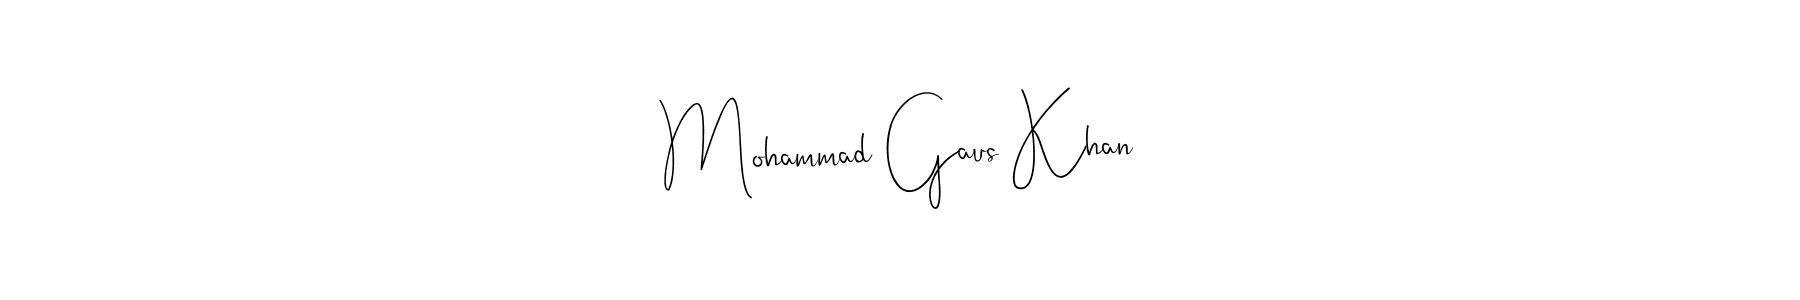 Mohammad Gaus Khan